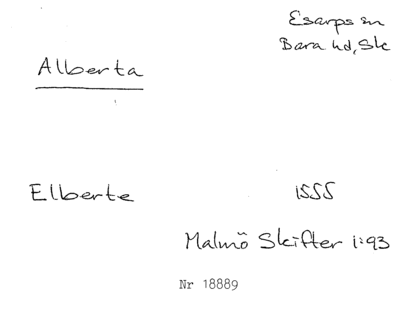 Esarps sn
Bara hd, Sk
Alberta
Elberte 1555
Malmö Skifter 1:93
Nr 18889